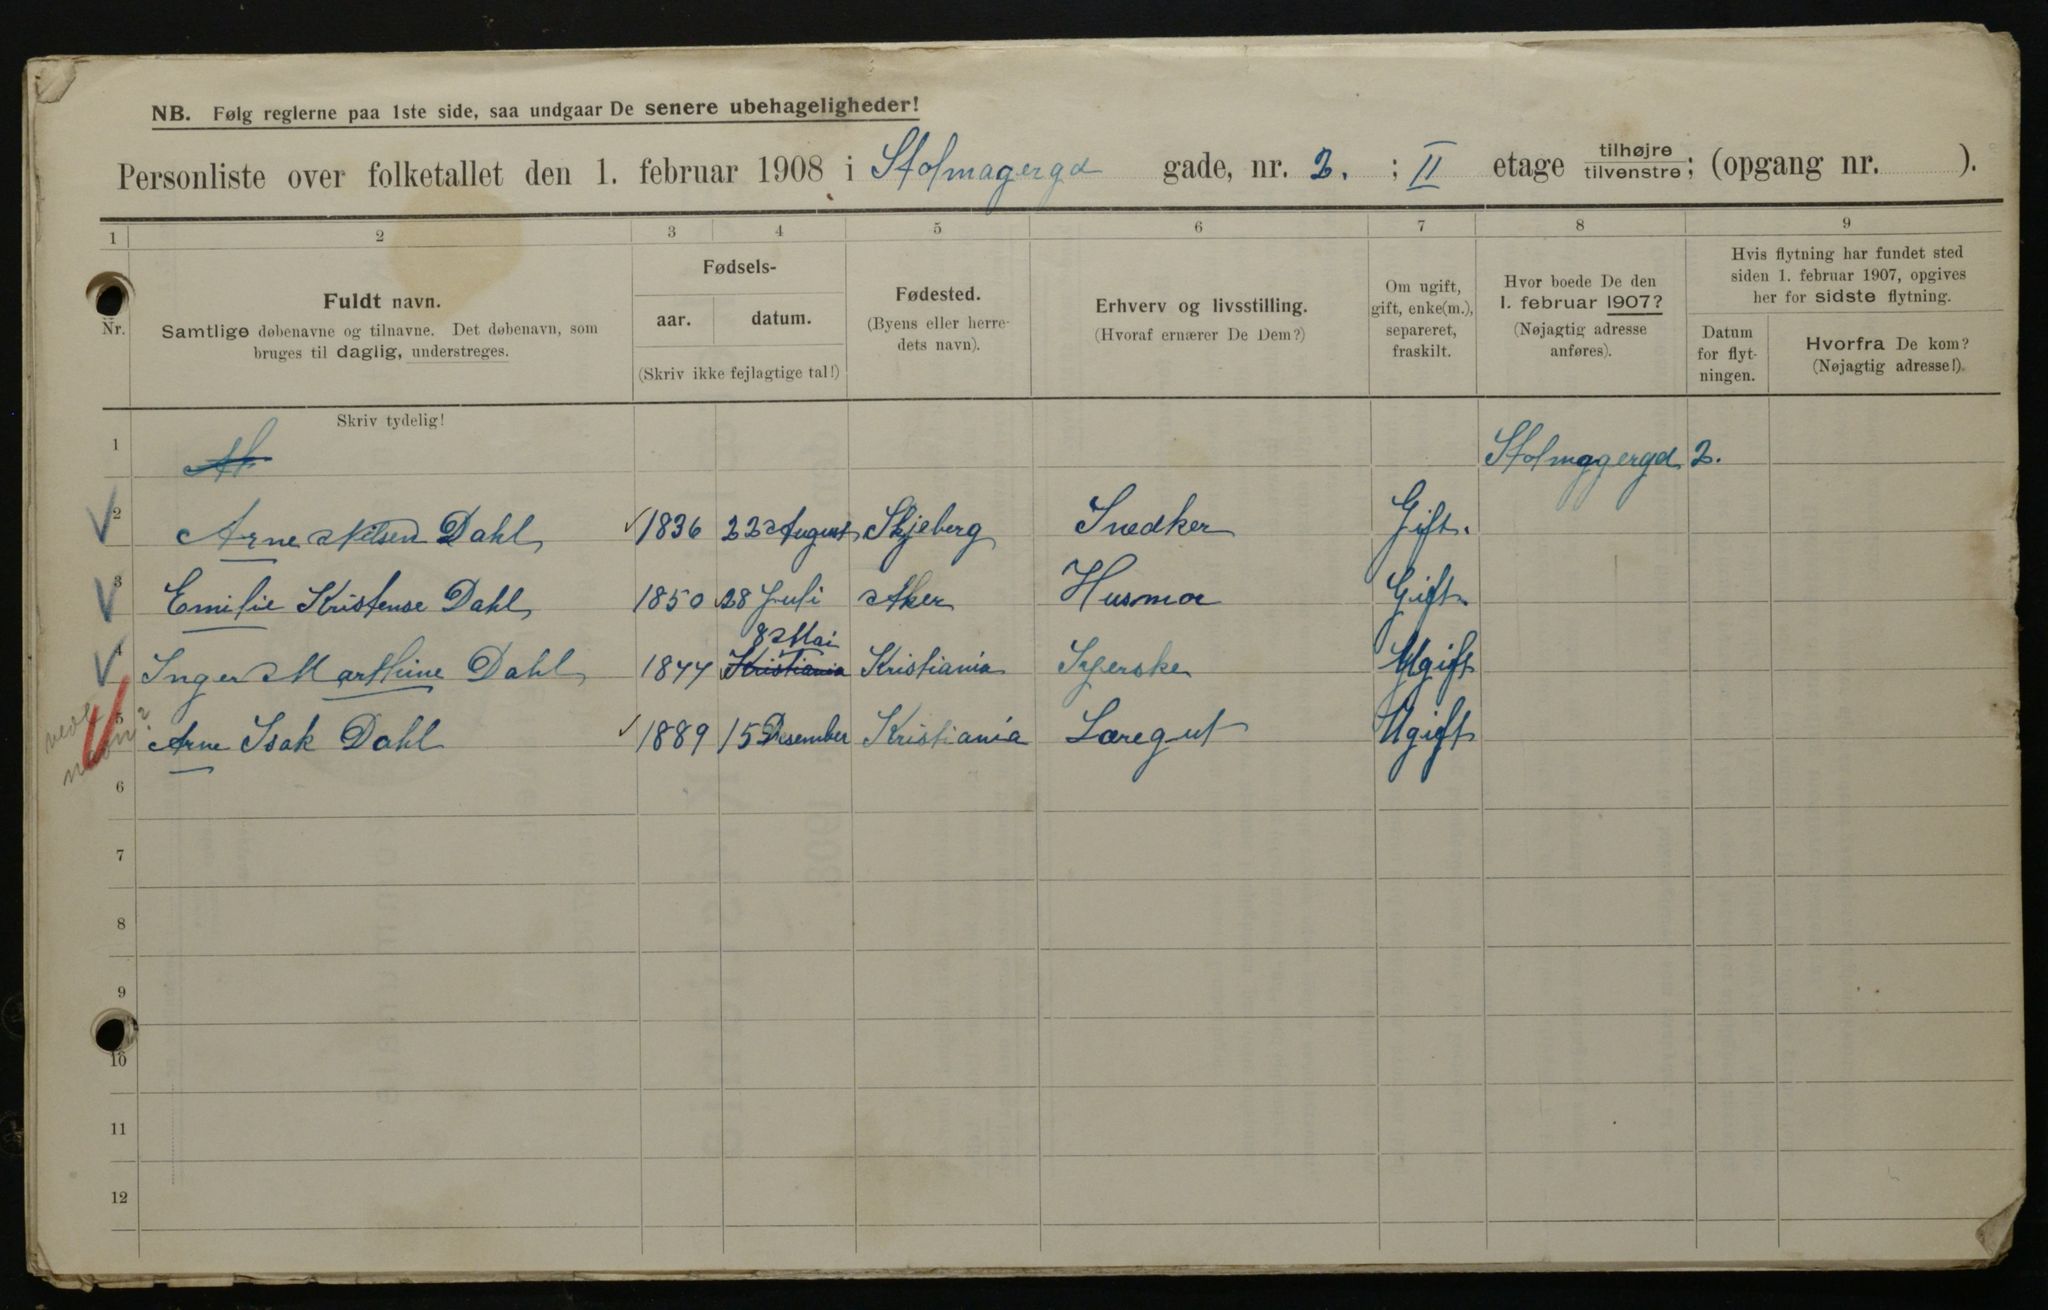 NB. Følg reglerne paa 1ste side, saa undgaar De senere ubehageligheder!
Personliste over folketallet den 1. februar 1908 i Stolmagergd gade, nr. 2. ; II etage tilhøjre tilvenstre; (opgang nr. ).
1 2 3 4 5 6 7 8 9
Nr.
Fuldt navn.
Samtlige døbenavne og tilnavne. Det døbenavn, som
bruges til daglig, understreges.
Skriv tydelig!
Fødsels-
aar. datum.
(Skriv ikke fejlagtige tal!)
Fødested.
(Byens eller herre-
dets navn).
Erhverv og livsstilling.
(Hvoraf ernærer De Dem?)
Om ugift,
gift, enke(m.),
separeret,
fraskilt.
Hvor boede De den
1. februar 1907?
(Nøjagtig adresse
anføres).
Hvis flytning har fundet sted
siden 1. februar 1907, opgives
her for sidste flytning.
Datum
for flyt-
ningen.
Hvorfra De kom?
(Nøjagtig adresse!).
1 Stolmagergd 2.
2 Arne Nilsen Dahl 1836 22 August Skjeberg Snedker Gift.
3 Emilie Kristense Dahl 1850 28 Juli Aker Husmor Gift.
8 Mai
4 Inger Marthine Dahl 1877 Kristiania Kristiania Syerske Ugift
5 Arne Isak Dahl 1889 15 Desember Kristiania Læregut Ugift
6
7
8
9
10
11
12